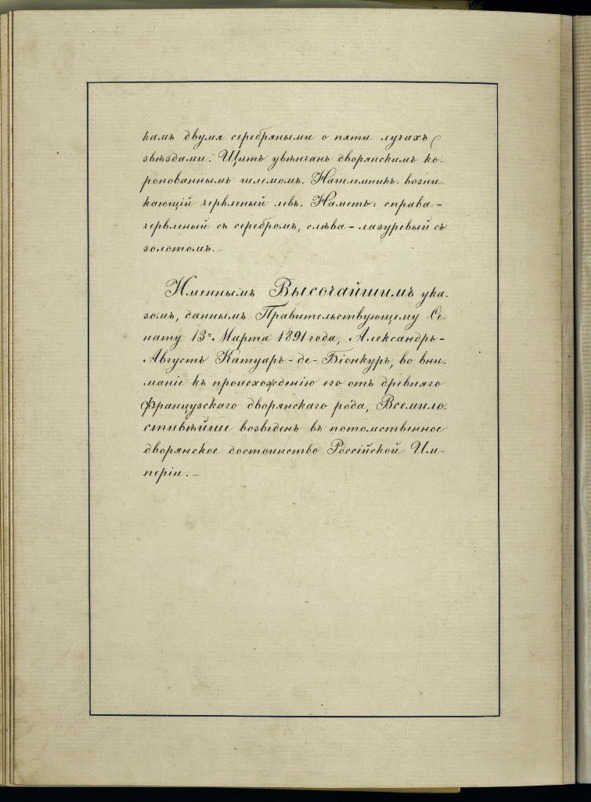 камъ двумя серебряными о пяти лучахъ
звѣздами. Щитъ увѣнчанъ дворянскимъ ко-
ронованнымъ шлемомъ. Нашлемникъ: возни-
кающій червленый левъ. Наметъ: справа-
червленый съ серебромъ, слѣва-лазуревый съ
золотомъ.-
Именнымъ Высочайшимъ ука-
зомъ, даннымъ Правительствующему Се
нату 13го Марта 1891 года, Александръ-
Августъ Катуаръ-де-Біонкуръ, во вни-
маніе къ происхожденію его отъ древняго
французскаго дворянскаго рода, Всемило-
стивѣйше возведенъ въ потомственное
дворянское достоинство Россійской Им-
періи.-